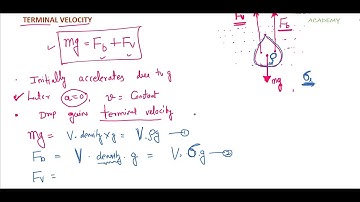 TERMINAL VELOCITY
ACADEMY
mg = Fb + Fv
Fv
Fb
ρ
mg
σ
• Initially accelerates due to g
• Later a=0, v = Constant
• Drop gains terminal velocity
mg = V. density x g = V. ρg — ①
Fb = V. density. g = V. σ.g — ②
Fv =